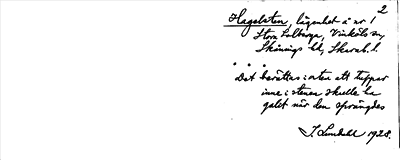 2
Hagelsten, lägenhet i nr 1
Stora Lalberga, Vinköls sn,
Skånings hd, Skarab. l.
Det berättas i orten att tuppar
inne i stenen skulle ha
galit när den sprängdes
J. Lundahl 1928.